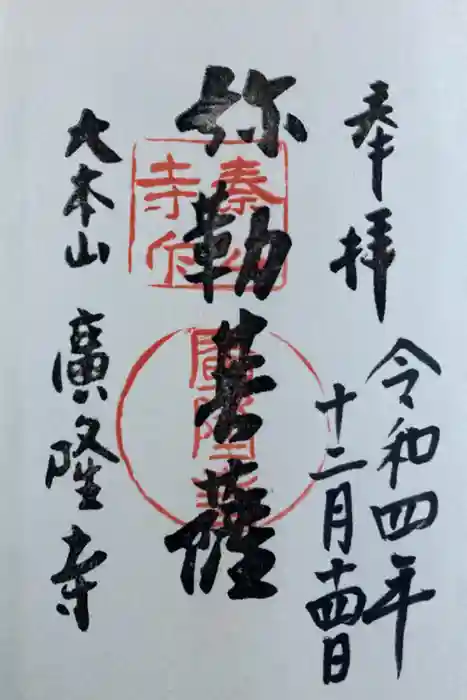 奉拝
令和四年
十二月十四日
弥勒菩薩
大本山
廣隆寺